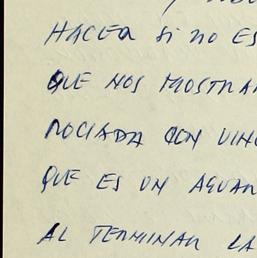 HACER si no ES
QUE NOS MOSTRAR
ROCIADA CON VINO
QUE ES UN AGUAR
AL TERMINAR LA